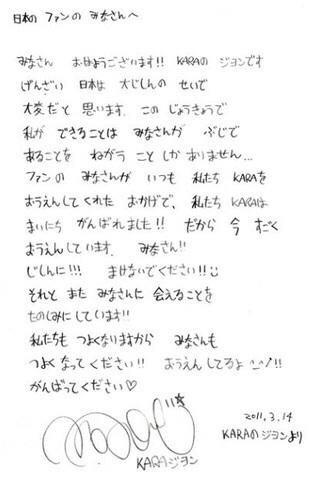 日本の ファンの みなさんへ
みなさん おはようございます!! KARAの ジヨンです
げんざい 日本は 大じしんの せいで
大変だと 思います. この じょうきょうで
私が できることは みなさんが ぶじで
あることを ねがう こと しか ありません...
ファンの みなさんが いつも 私たち KARAを
おうえんしてくれた おかげで、私たち KARAは
まいにち がんばれました!! だから 今 すごく
おうえんしています. みなさん!!
じしんに!!! まけないでください!!
それと また みなさんに 会えることを
たのしみにしています!!
私たちも つよくなりますから みなさんも
つよく なってください!! おうえん してるよ ^^!!
がんばってください♡
2011.3.14
KARAのジヨンより
KARAジヨン